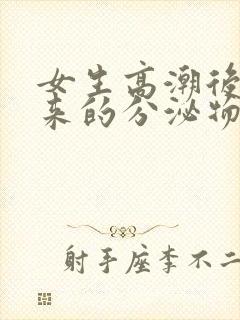 女生高潮後
来的分泌物
射手座李不二